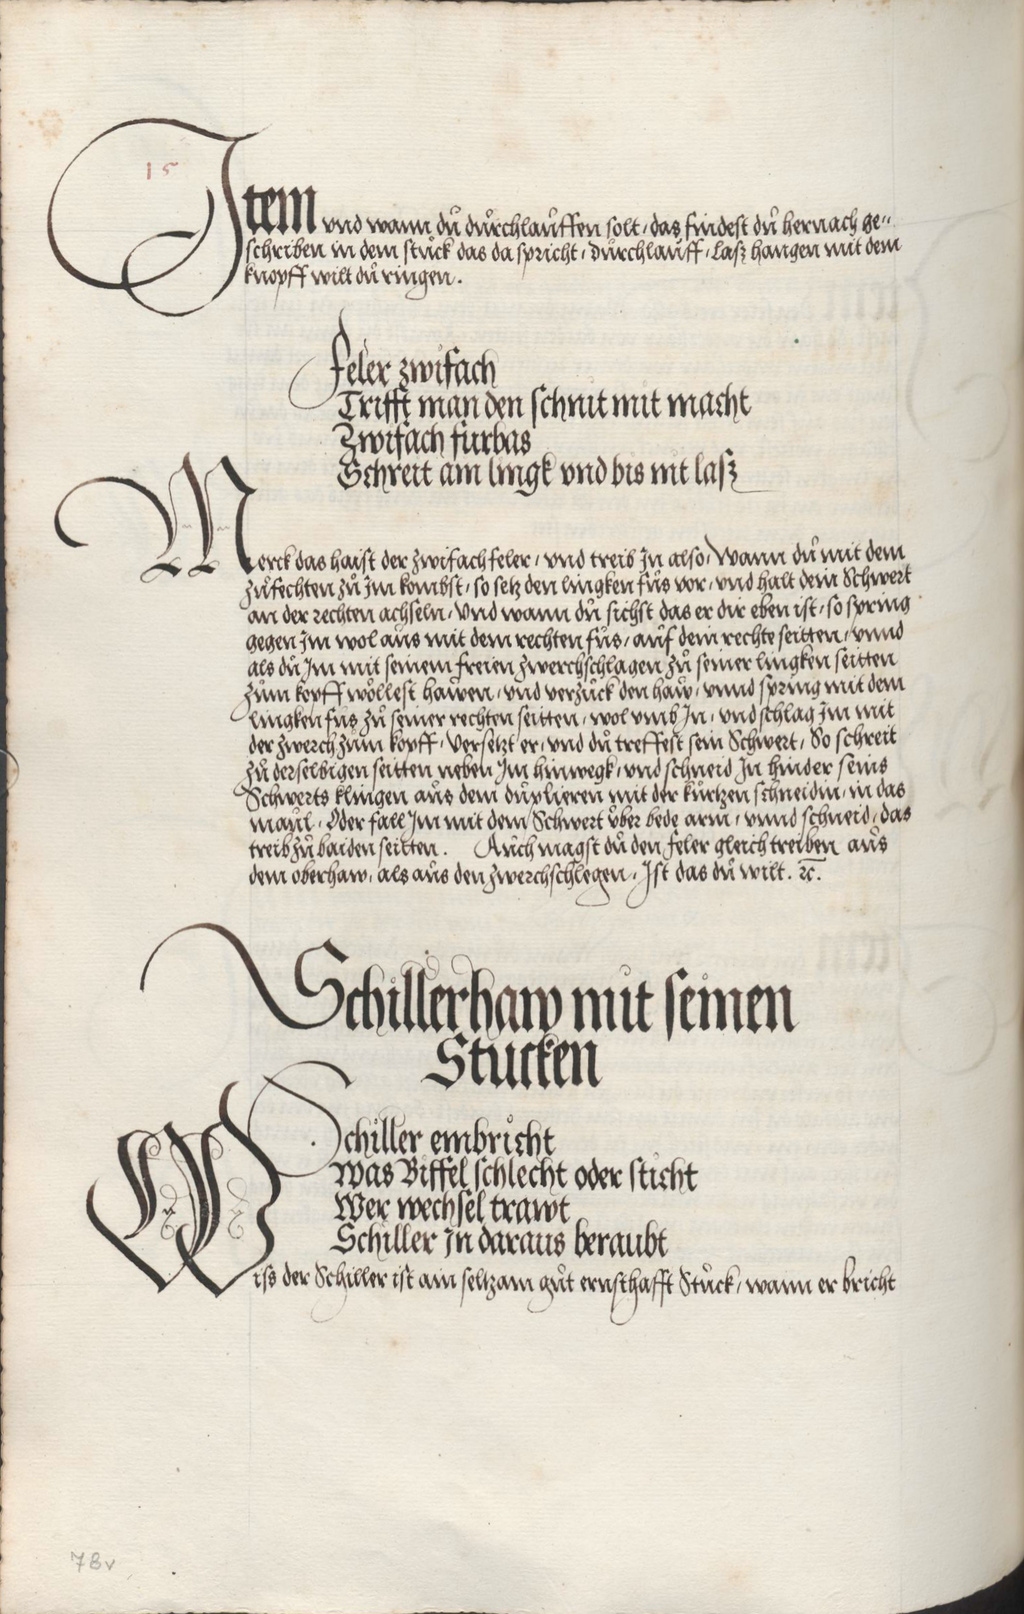 15
Item vnd wann dů důrchlaůffen solt, das findest dů hernach ge-
schriben in dem stůck das da spricht, důrchlaůff, lasz hangen mit dem
knopff wilt dů ringen.
Feler zwifach
Trifft man den schnit mit macht
Zwifach fürbas
Schreit am lingk vnd bis nit lasz
Merck das haist der zwifach feler, vnd treib In also, Wann dů mit dem
zůfechten zů Im kombst, so setz den lingken fůs vor, vnd halt dein Schwert
an der rechten achseln, Vnd wann dů sichst das er dir eben ist, so spring
gegen Im wol aůs mit dem rechten fůs, aůf dein rechte seitten, vnnd
als dů Im mit seinem freien zwerchschlagen zů seiner lingken seitten
zům kopff wöllest hawen, vnd verzůck den haw, vnnd spring mit dem
lingken fůs zů seiner rechten seitten, wol vmb In, vnd schlag Im mit
der zwerch zům kopff, Versetzt er, vnd dů treffest sein Schwert, So schreit
zů derselbigen seitten neben Im hinwegk, vnd schneid In hinder seins
Schwerts klingen aůs dem důplieren mit der kůrtzen schneidin, in das
maůl, Oder fall Im mit dem Schwert ůber bede arm, vnnd schneid, das
treib zů baiden seitten. Aůch magst dů den feler gleich treiben aůs
dem oberhaw, als aůs den zwerchschlegen, Ist das dů wilt. ꝛc.
Schillerhaw mit seinen
Stucken
Schiller einbricht
Was Biffel schlecht oder sticht
Wer wechsel trawt
Schiller In daraus beraubt
Wiss der Schiller ist ain seltzam gůt ernsthafft Stůck, wann er bricht
78v